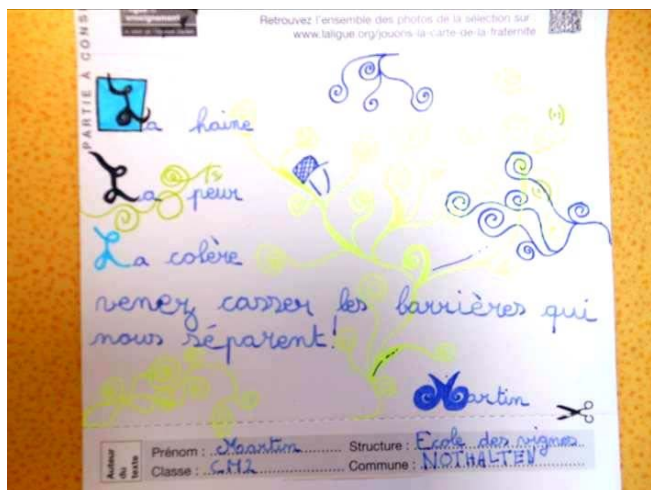 enseignement
PARTIE À CONS
Retrouvez l'ensemble des photos de la sélection sur
www.laligue.org/jouons-la-carte-de-la-fraternite
La haine
La peur
La colère
venez casser les barrières qui
nous séparent!
Martin
Auteur du texte
Prénom : Martin Structure : Ecole des vignes
Classe : CM2 Commune : NOTHALTEN